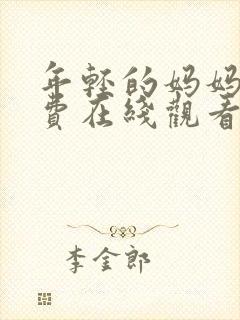 年輕的妈妈
費在綫觀看
李金郎